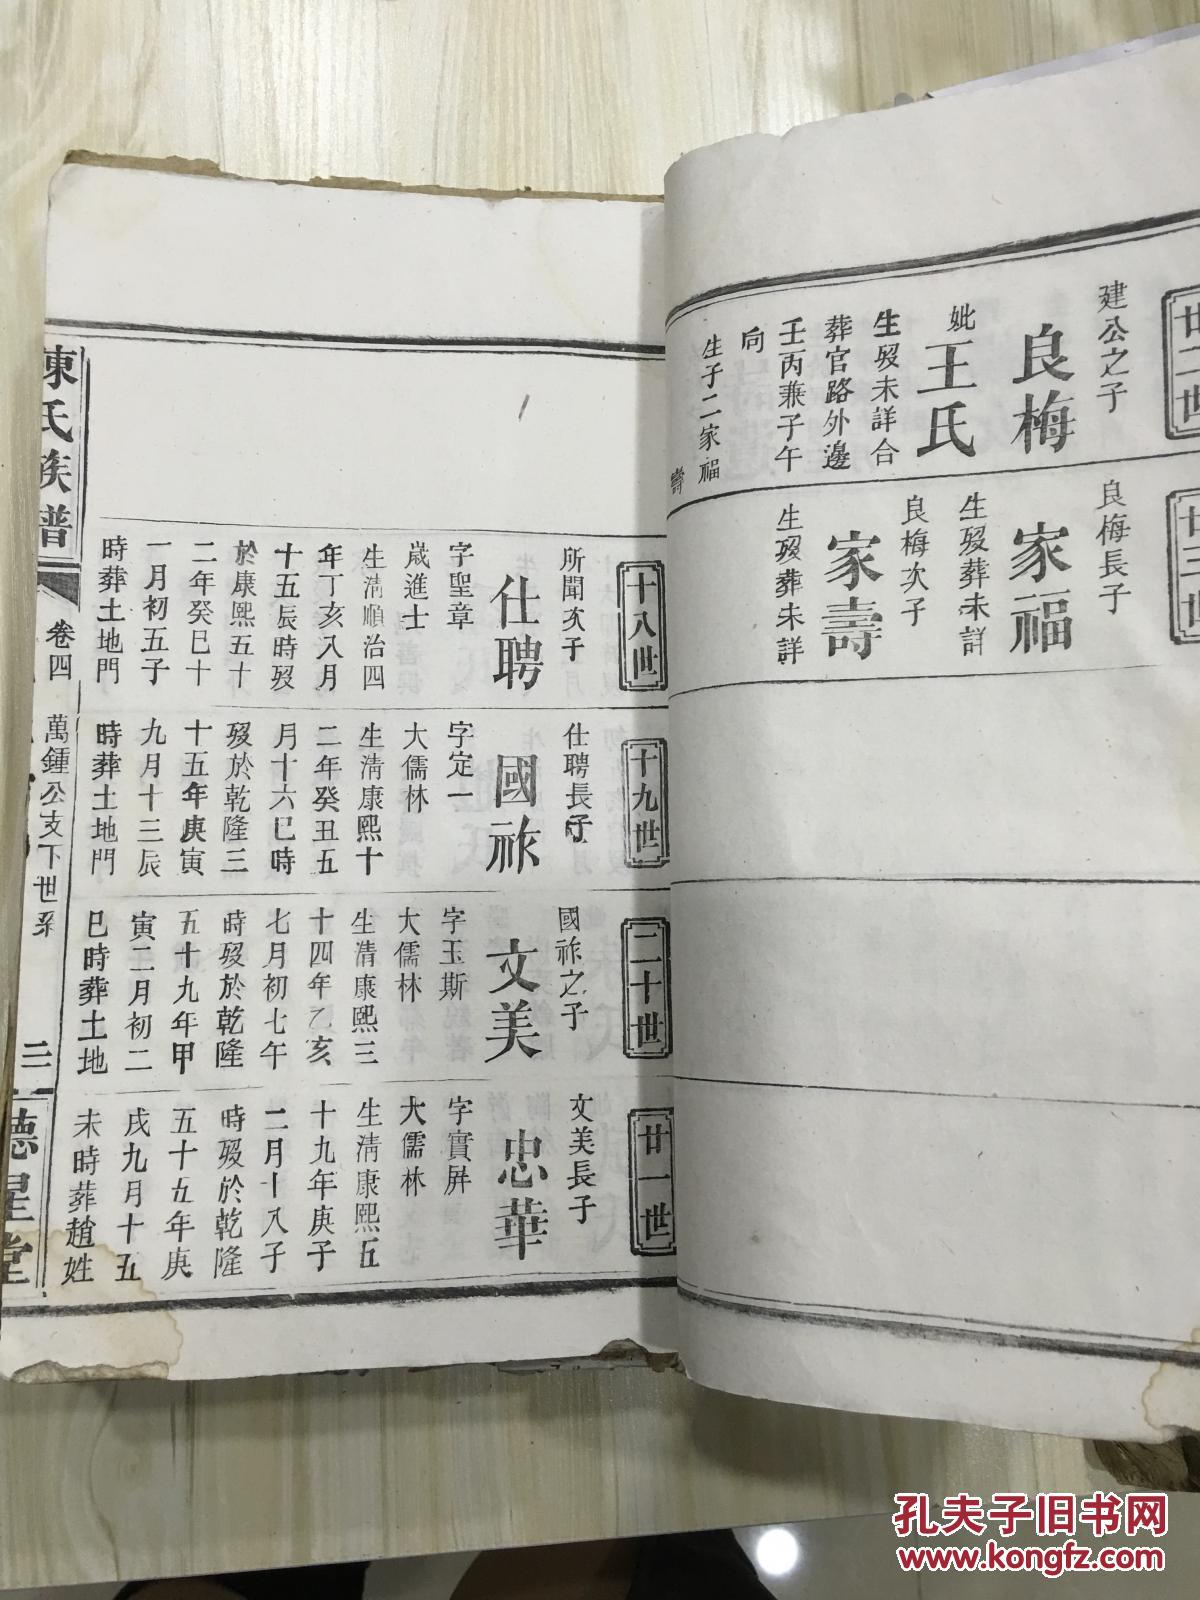 廿二世
建公之子
良梅
妣王氏
生歿未詳合
葬官路外邊
壬丙兼子午
向
生子二家福
壽
廿三世
良梅長子
家福
生歿葬未詳
良梅次子
家壽
生歿葬未詳
十八世
所聞次子
仕聘
字聖章
歲進士
生清順治四
年丁亥八月
十五辰時歿
於康熙五十
二年癸巳十
一月初五子
時葬土地門
十九世
仕聘長子
國祚
字定一
大儒林
生清康熙十
二年癸丑五
月十六巳時
歿於乾隆三
十五年庚寅
九月十三辰
時葬土地門
二十世
國祚之子
文美
字玉斯
大儒林
生清康熙三
十四年乙亥
七月初七午
時歿於乾隆
五十九年甲
寅二月初二
巳時葬土地
廿一世
文美長子
忠華
字實屏
大儒林
生清康熙五
十九年庚子
二月十八子
時歿於乾隆
五十五年庚
戌九月十五
未時葬趙姓
陳氏族譜
卷四
萬鍾公支下世系
二
德星堂
孔夫子旧书网
www.kongfz.com